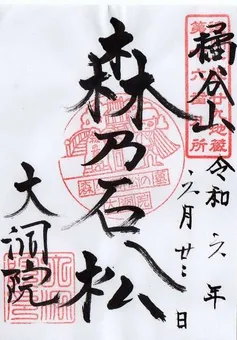 橘谷山
令和六年
六月廿三日
森乃石松
大洞院